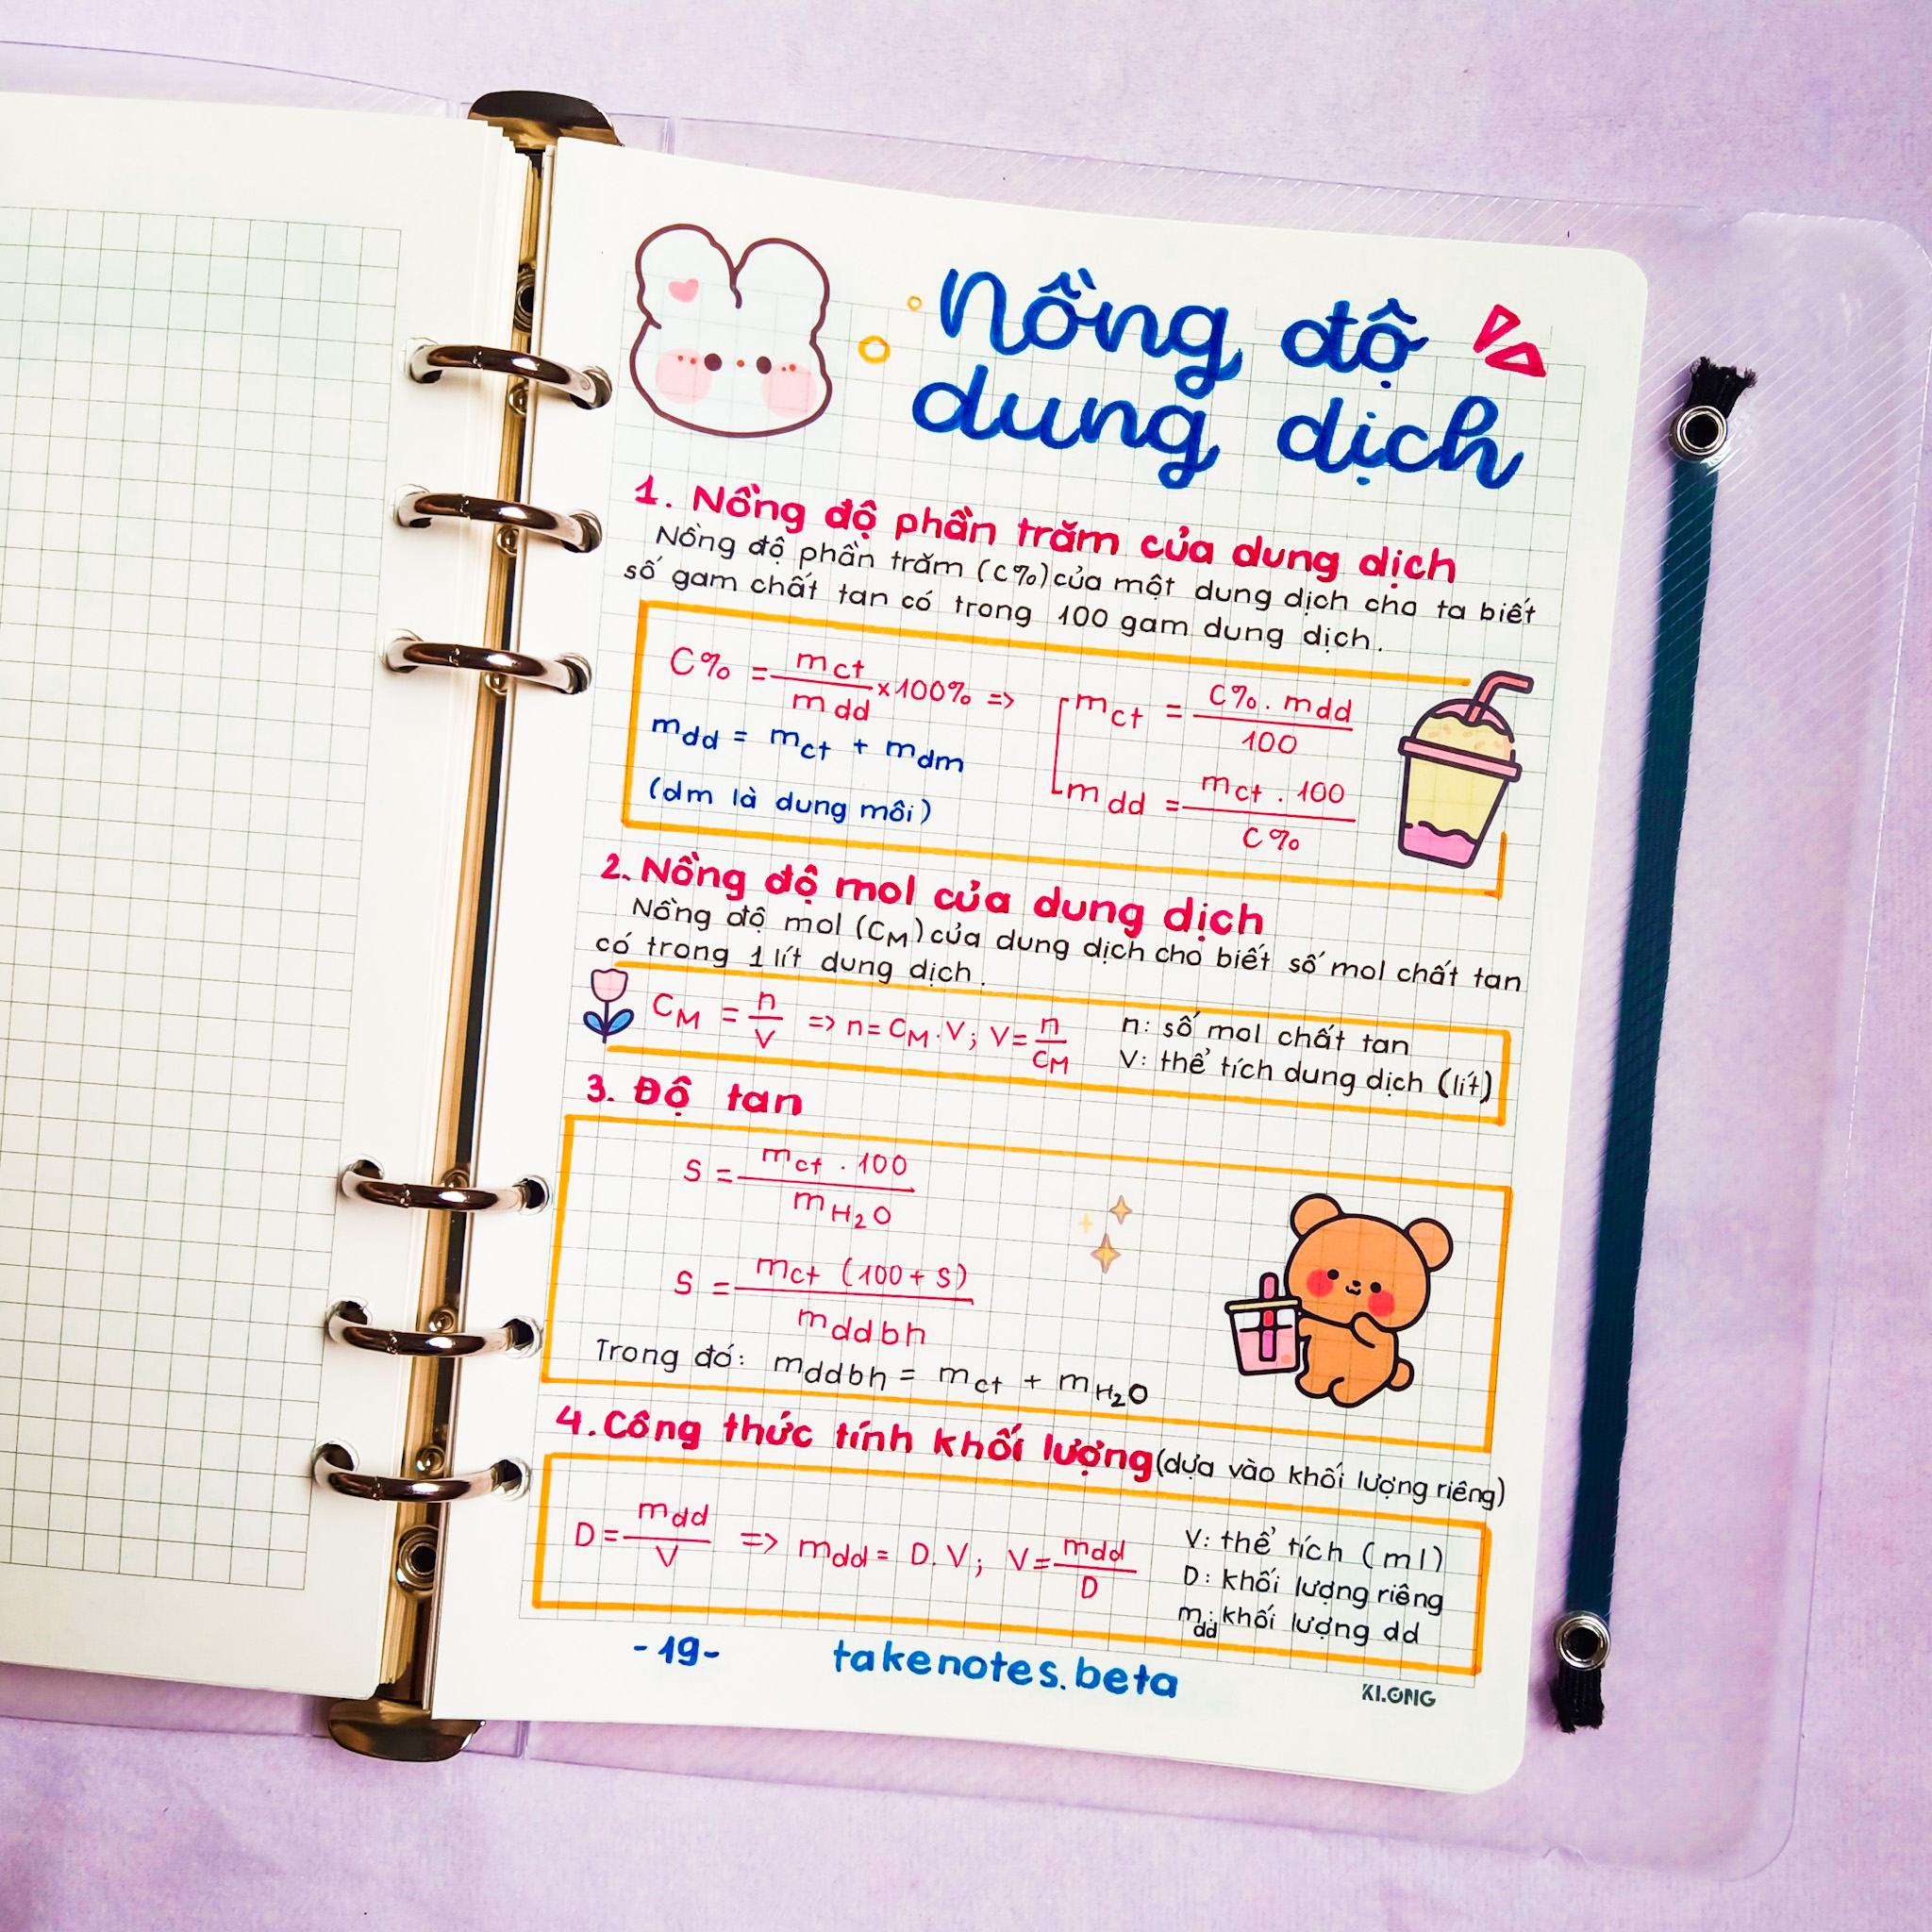 Nồng độ
dung dịch
1. Nồng độ phần trăm của dung dịch
Nồng độ phần trăm (C%) của một dung dịch cho ta biết
số gam chất tan có trong 100 gam dung dịch.
C% = mct / mdd x100% => mct = C%. mdd / 100
mdd = mct + mdm
(dm là dung môi)
mdd = mct . 100 / C%
2. Nồng độ mol của dung dịch
Nồng độ mol (CM) của dung dịch cho biết số mol chất tan
có trong 1 lít dung dịch.
CM = n / V => n = CM . V ; V = n / CM
n: số mol chất tan
V: thể tích dung dịch (lít)
3. Độ tan
S = mct . 100 / mH2O
S = mct (100 + S) / mddbh
Trong đó: mddbh = mct + mH2O
4. Công thức tính khối lượng (dựa vào khối lượng riêng)
D = mdd / V => mdd = D. V ; V = mdd / D
V: thể tích (ml)
D: khối lượng riêng
mdd: khối lượng dd
-19-
takenotes.beta
KLONG